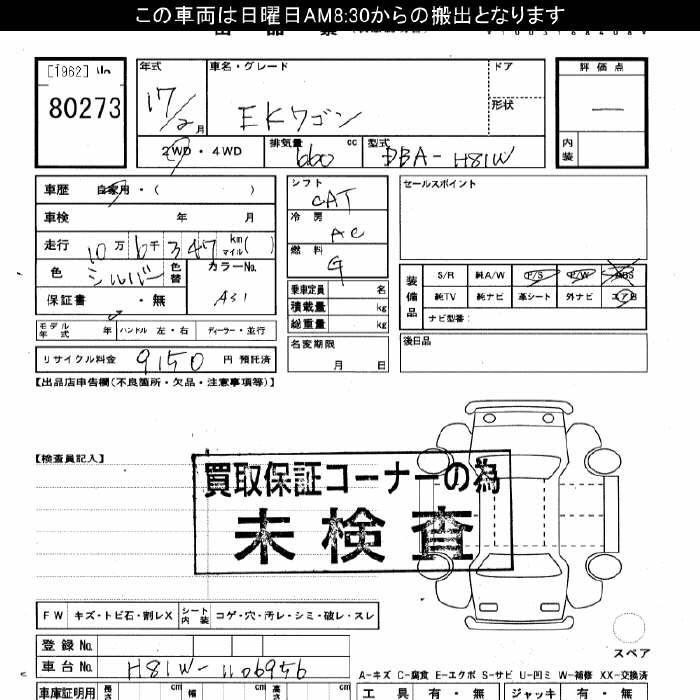 この車両は日曜日AM8:30からの搬出となります
[1962]
80273
年式 車名・グレード ドア 評価点
17/2月 EKワゴン 形状 —
2WD・4WD 排気量 660 cc 型式 DBA-H81W 内装
車歴 自家用・( )
車検 年 月
走行 10万6千347 km マイル( )
色 シルバー 色替 カラーNo.
保証書 ・無 A31
モデル年式 年 ハンドル 左・右 ディーラー・並行
リサイクル料金 9150 円 預託済
シフト CAT
冷房 AC
燃料 G
乗車定員 名
積載量 kg
総重量 kg
名変期限 月 日
セールスポイント
装備品 S/R 純A/W P/S P/W ABS
純TV 純ナビ 革シート 外ナビ エアB
ナビ型番:
後日品
【出品店申告欄(不良箇所・欠品・注意事項等)】
【検査員記入】
買取保証コーナーの為
未検査
FW キズ・トビ石・割レX シート内装 コゲ・穴・汚レ・シミ・破レ・スレ
登録No.
車台No. H81W-1106956
スペア
A-キズ C-腐食 E-エクボ S-サビ U-凹ミ W-補修 XX-交換済
車庫証明用 長さ cm 幅 cm 高さ cm
工具 有・無 ジャッキ 有・無